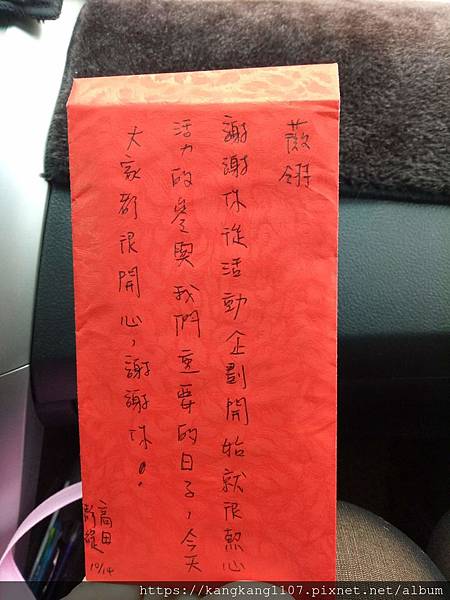 薇翎
謝謝妳從活動企劃開始就很熱心
活力的參與我們重要的日子,今天
大家都很開心,謝謝妳。
高田
10/14
https://kangkang1107.pixnet.net/album